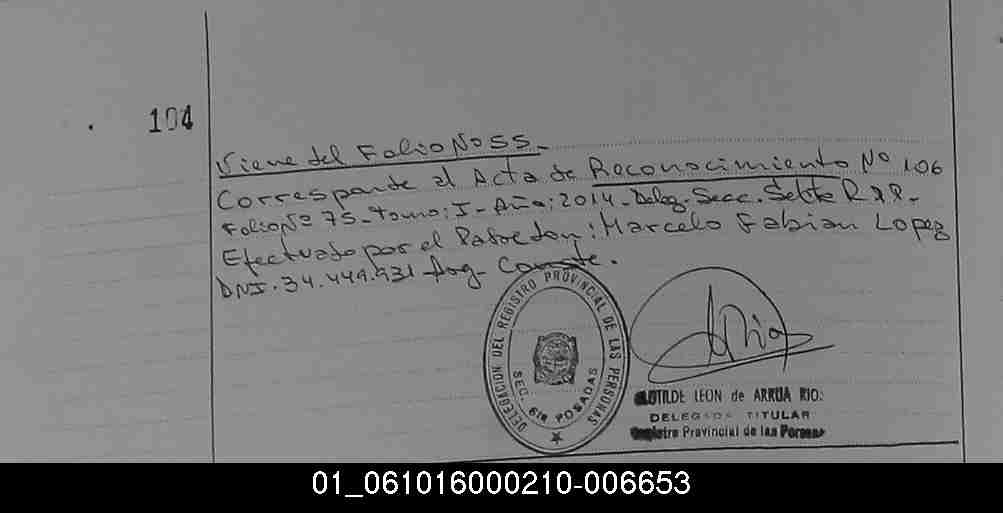 104
Viene del Folio Nº 55-
Corresponde al Acta de Reconocimiento Nº 106
Folio Nº 75- Tomo: I- Año: 2014- Deleg. Secc. Selte R.P.P.-
Efectuado por el Padre don: Marcelo Fabian Lopez
DNI. 34.449.931- Arg- Conste.
DELEGACION DEL REGISTRO PROVINCIAL DE LAS PERSONAS
SEC. 6ta POSADAS
CLOTILDE LEON de ARRUA RIOS
DELEGADA TITULAR
Registro Provincial de las Personas
01_061016000210-006653